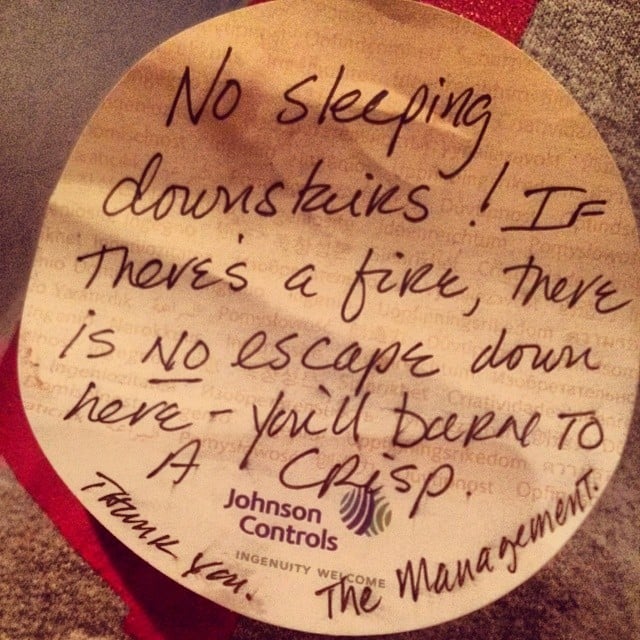 No sleeping
downstairs! IF
There's a fire, there
is NO escape down
here - you'll burn TO
A CRisp.
Johnson
Controls
INGENUITY WELCOME
Thank you.
The Management.